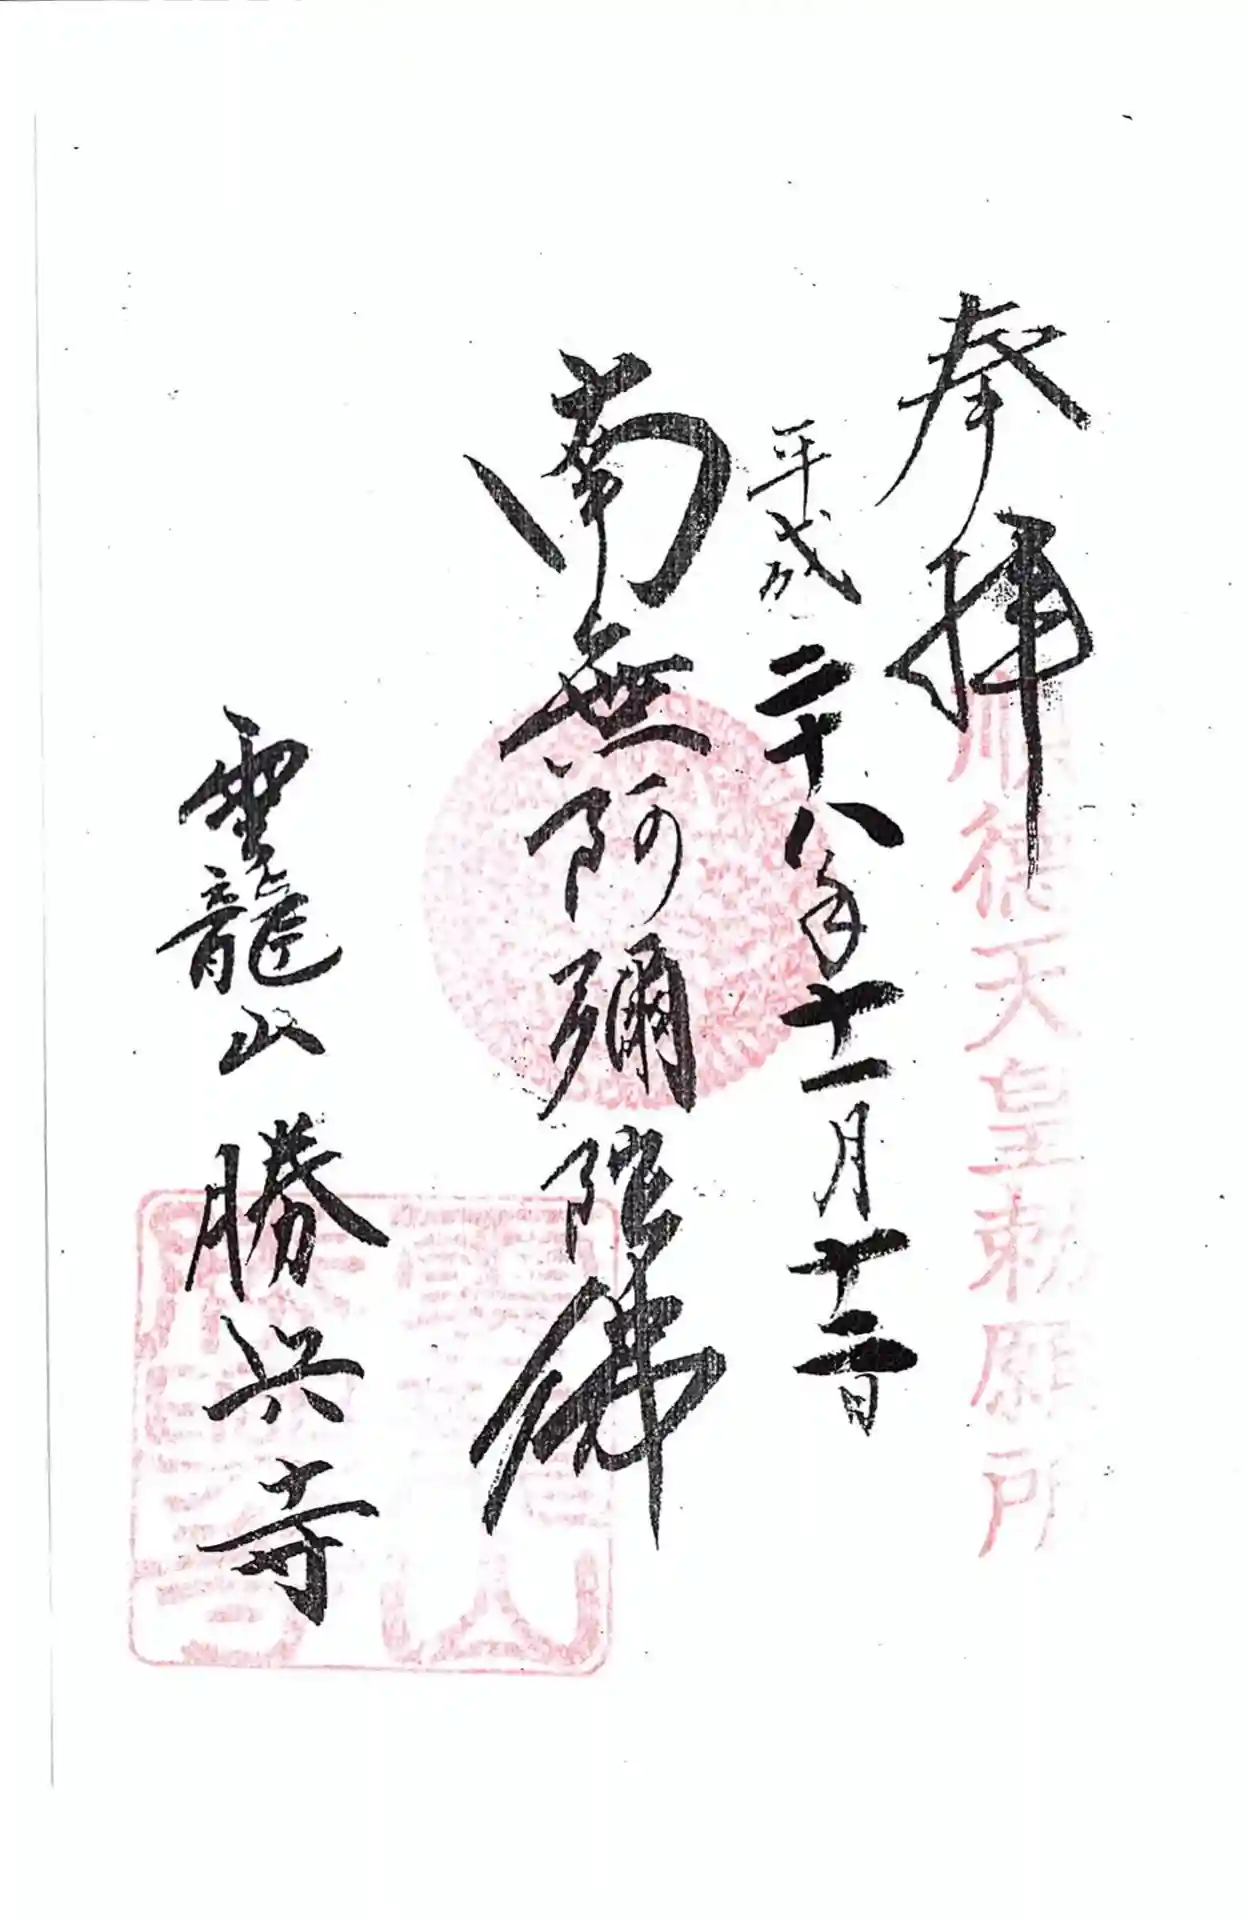 奉拝
順徳天皇勅願所
平成二十八年十一月十二日
南無阿彌陀佛
雲龍山 勝興寺